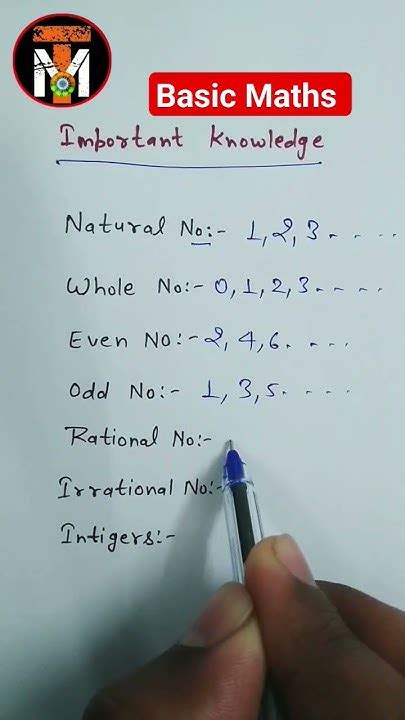 TM
Basic Maths
Important Knowledge
Natural No:- 1, 2, 3 - - - - -
Whole No:- 0, 1, 2, 3 - - - - -
Even No:- 2, 4, 6 - - - - -
Odd No:- 1, 3, 5 - - - - -
Rational No:-
Irrational No:-
Intigers:-